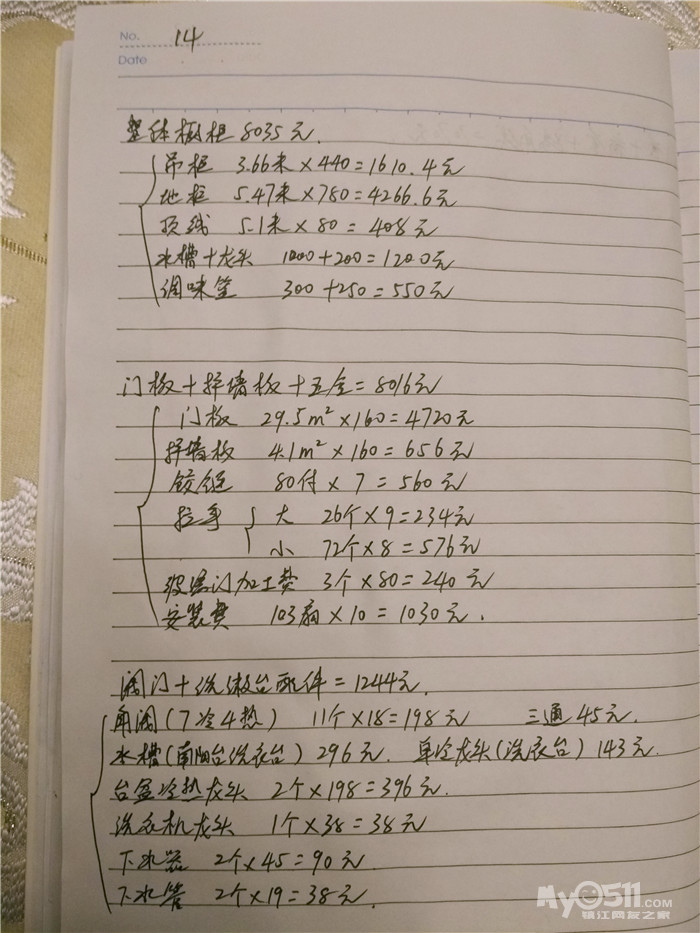 No. 14
Date
整体橱柜 8035元.
吊柜 3.66米×440=1610.4元
地柜 5.47米×780=4266.6元
顶线 5.1米×80=408元
水槽+龙头 1000+200=1200元
调味筐 300+250=550元
门板+择墙板+五金=8016元
门板 29.5m²×160=4720元
择墙板 4.1m²×160=656元
铰链 80付×7=560元
拉手 大 26个×9=234元
小 72个×8=576元
玻璃门加工费 3个×80=240元
安装费 103扇×10=1030元.
阀门+洗漱台配件=1244元.
角阀(7冷4热) 11个×18=198元 三通45元.
水槽(南阳台洗衣台)296元. 单冷龙头(洗衣台)143元.
台盆冷热龙头 2个×198=396元.
洗衣机龙头 1个×38=38元
下水器 2个×45=90元
下水管 2个×19=38元.
My0511.COM
镇江网友之家